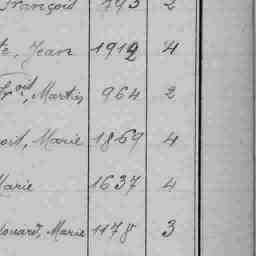 François 793 2
te, Jean 1912 4
Martin 964 2
oit, Marie 1869 4
Marie 1637 4
douard, Marie 1178 3